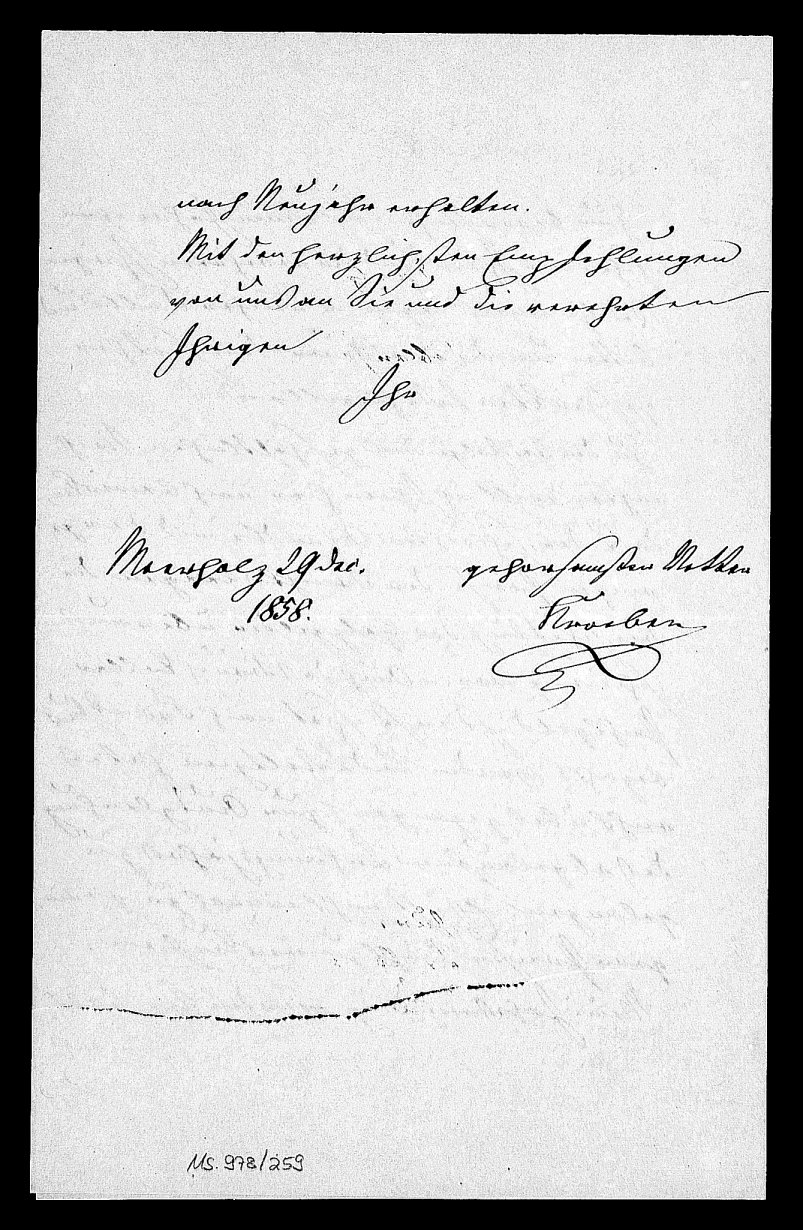 nach Neujahr erhalten.
Mit den herzlichsten Empfehlungen
von uns an Sie und die verehrten
Ihrigen
Ihr
Meerholz 29 Dec.
1858.
gehorsamster Vetter
Kroeber
Ms. 978/259